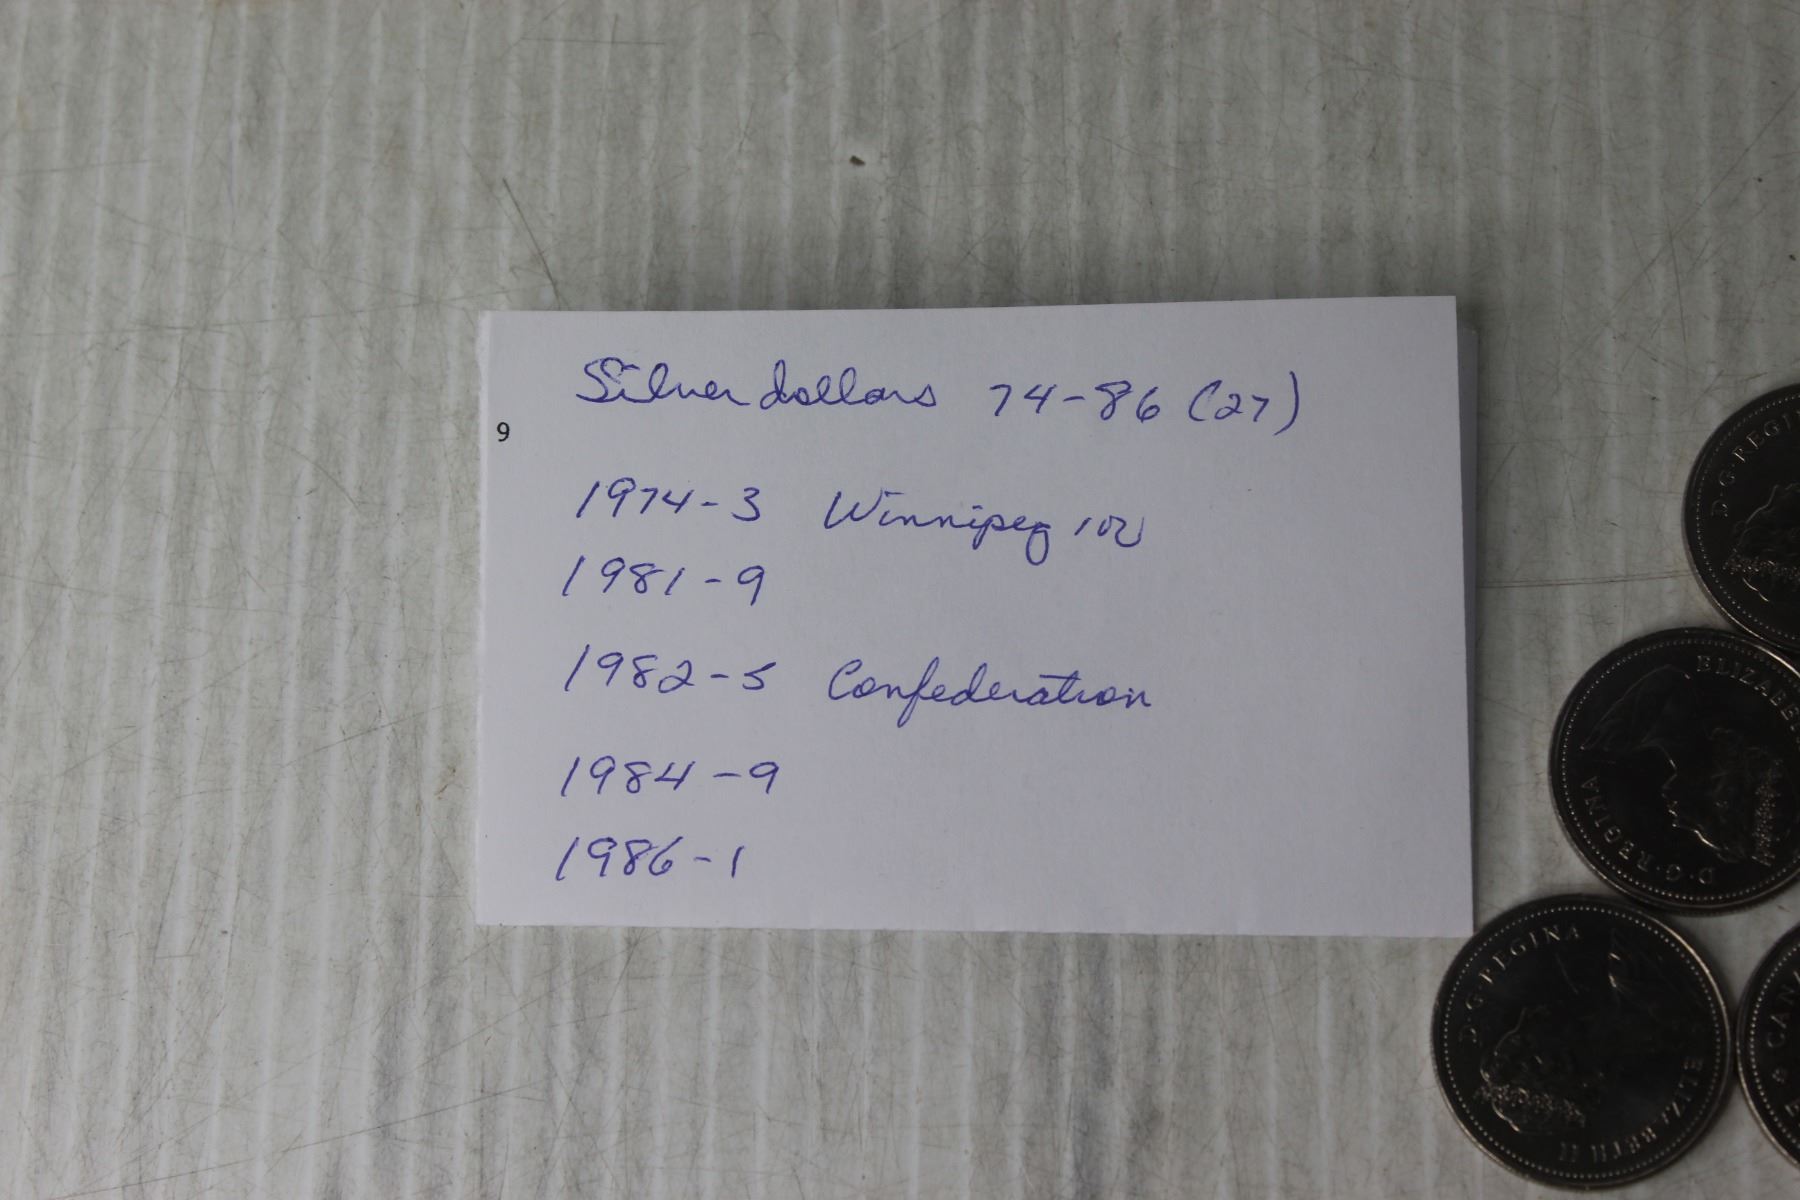 Silver dollars 74-86 (27)
9
1974-3 Winnipeg 100
1981-9
1982-5 Confederation
1984-9
1986-1
D·G·REGINA
ELIZABETH
D·G·REGINA
ELIZABETH II
D·G·REGINA